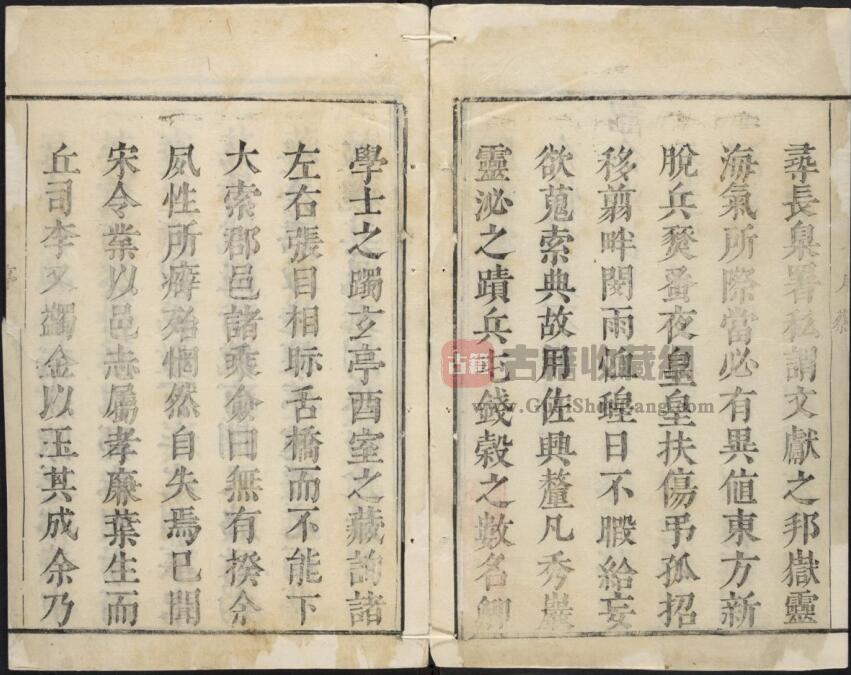 尋長臬署私謂文獻之邦嶽靈
海氣所際當必有異值東方新
脫兵燹蚤夜皇皇扶傷弔孤招
移翦畔閔雨恤蝗日不暇給妄
欲蒐索典故用佐興釐凡秀巖
靈泌之蹟兵屯錢穀之數名卿
學士之躅玄亭酉室之藏詢諸
左右張目相眎舌橋而不能下
大索郡邑諸乘僉曰無有揆余
夙性所癖殆惘然自失焉已聞
宋令業以邑志屬孝廉葉生而
丘司李又蠲金以玉其成余乃
古籍
古籍收藏
www.GuJiShouCang.com